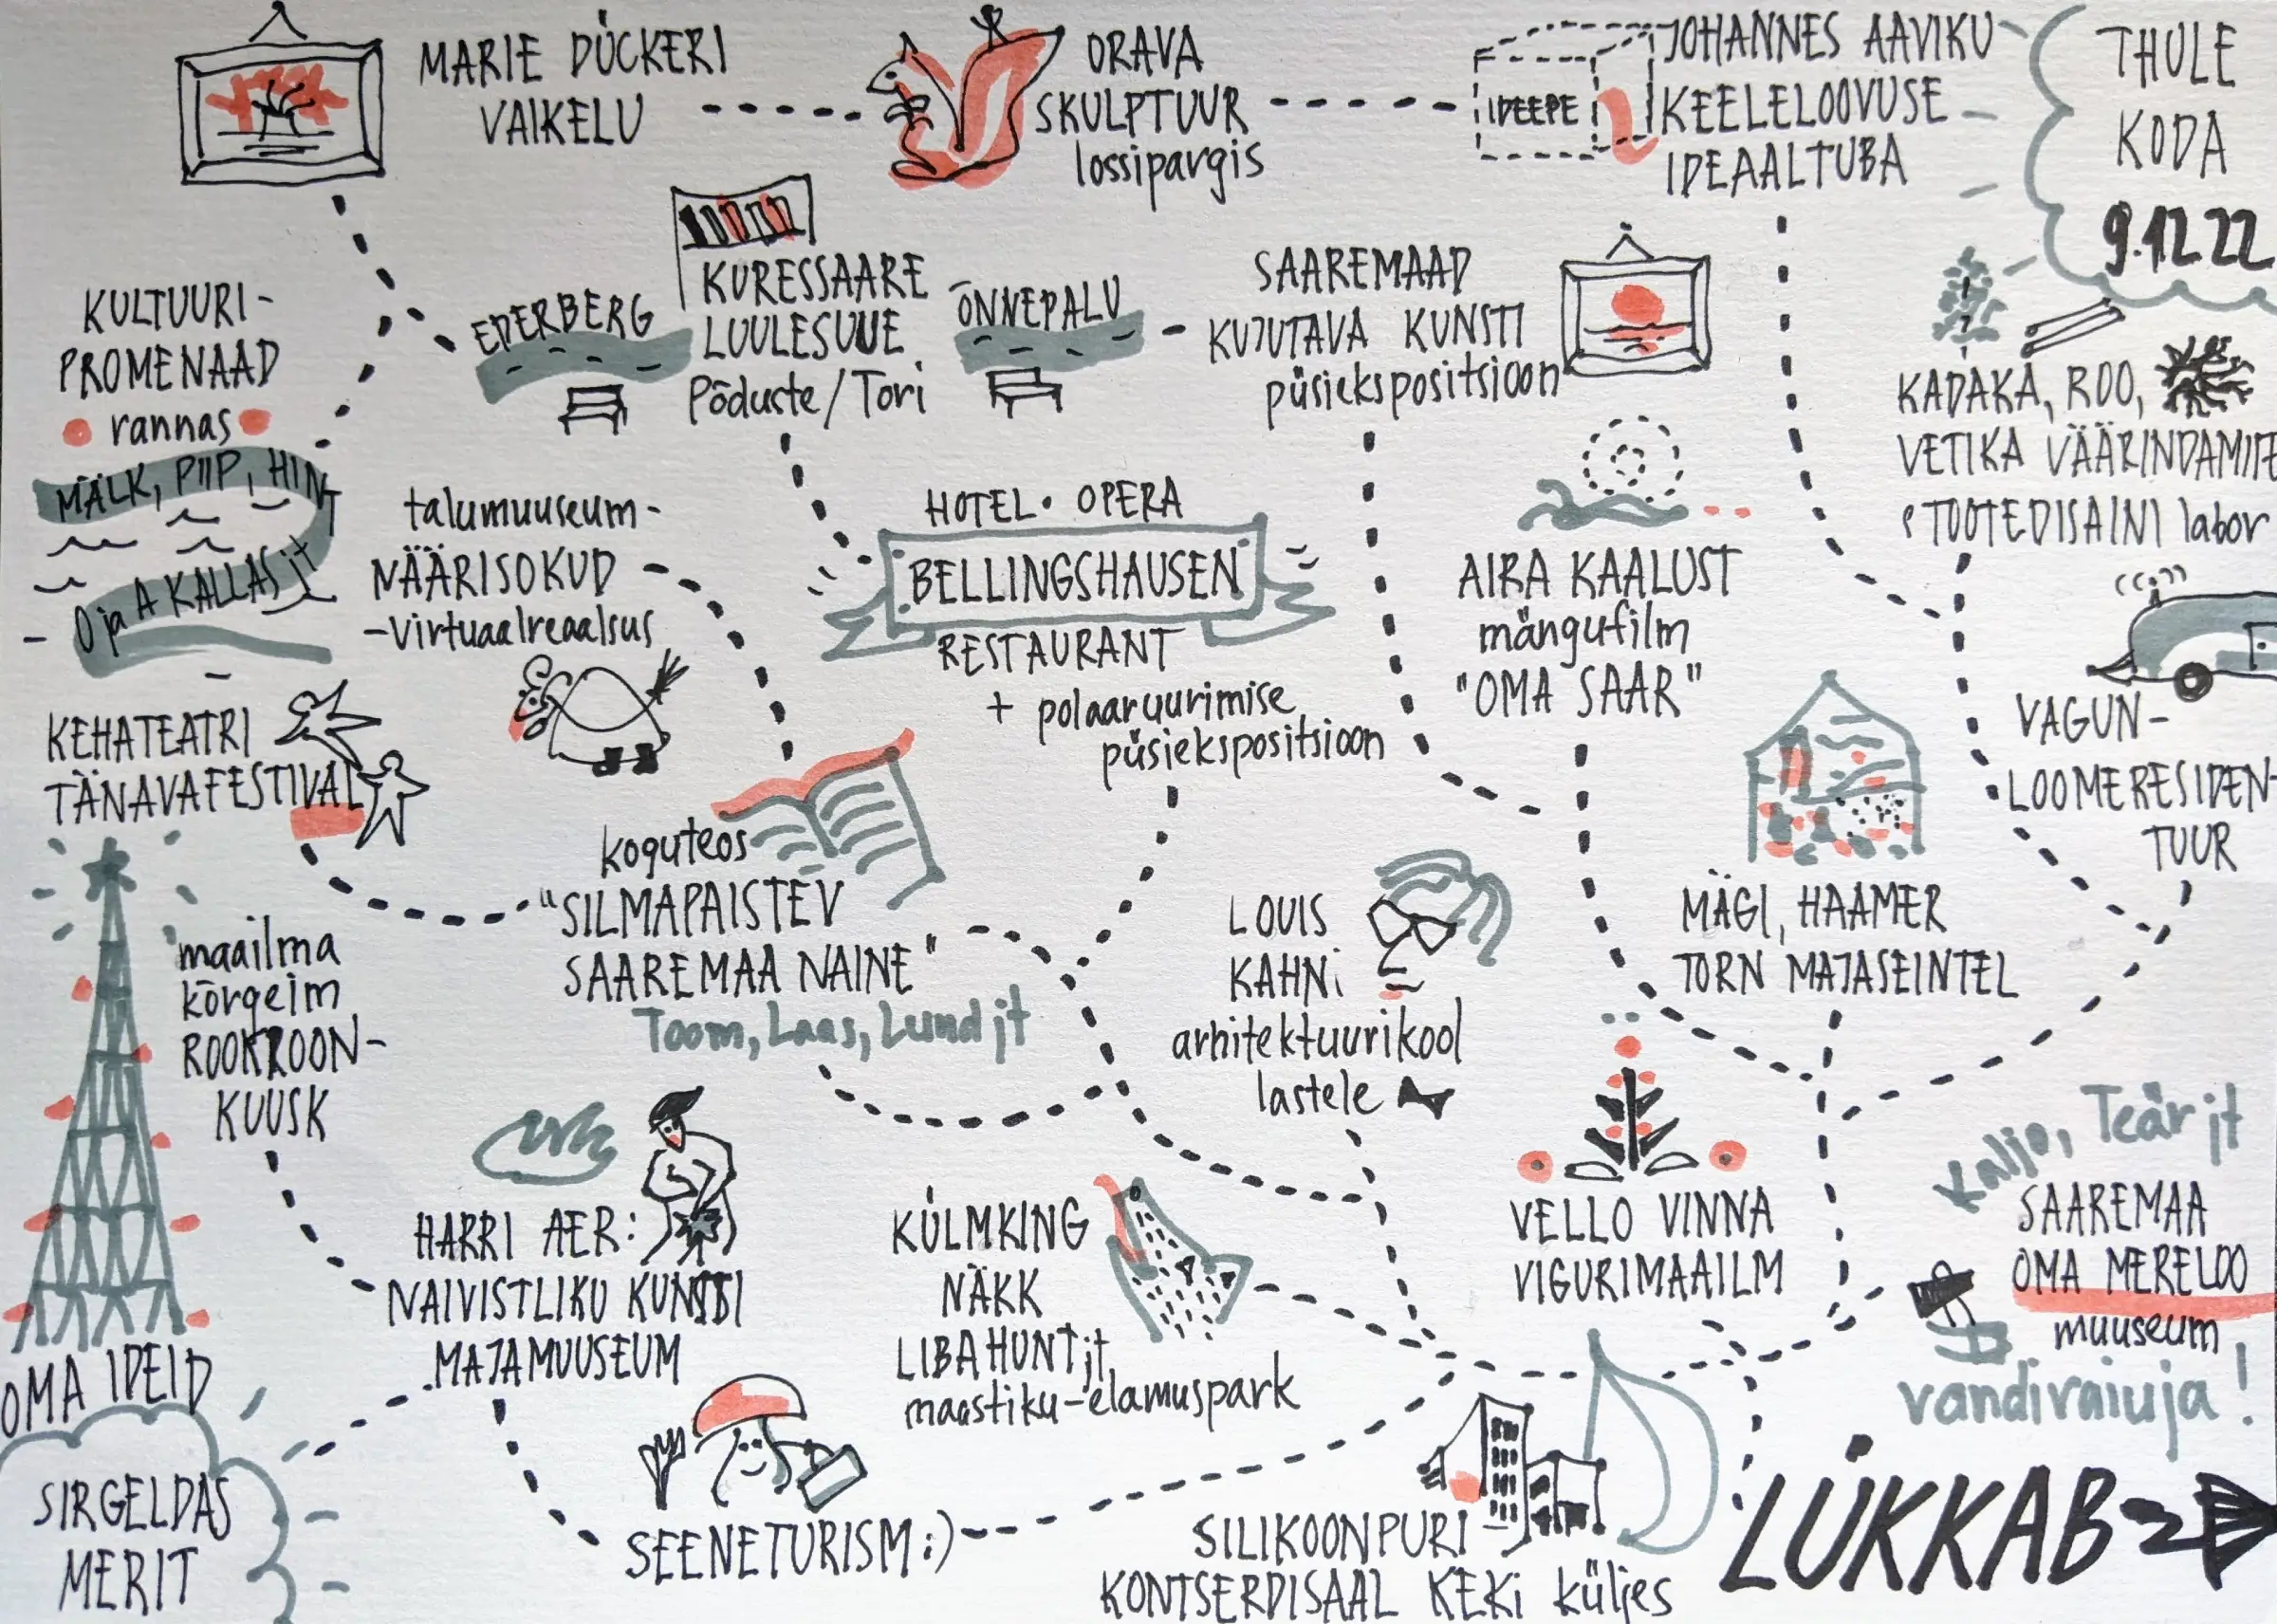 MARIE DÜCKERI
VAIKELU
ORAVA
SKULPTUUR
lossipargis
IDEEPE
JOHANNES AAVIKU
KEELELOOVUSE
IDEAALTUBA
THULE
KODA
9.12.22
KULTUURI-
PROMENAAD
rannas
MÄLK, PIIP, HINT
O ja A KALLAS jt
EDERBERG
KURESSAARE
LUULESUUE
Põduste/Tori
ÕNNEPALU
SAAREMAAD
KUJUTAVA KUNSTI
püsiekspositsioon
KADAKA, ROO,
VETIKA VÄÄRINDAMISE
TOOTEDISAINI labor
talumuuseum-
NÄÄRISOKUD
-virtuaalreaalsus
HOTEL • OPERA
BELLINGSHAUSEN
RESTAURANT
+ polaaruurimise
püsiekspositsioon
AIRA KAALUST
mängufilm
"OMA SAAR"
VAGUN-
LOOMERESIDEN-
TUUR
KEHATEATRI
TÄNAVAFESTIVAL
koguteos
"SILMAPAISTEV
SAAREMAA NAINE"
Toom, Laas, Lund jt
LOUIS
KAHNi
arhitektuurikool
lastele
MÄGI, HAAMER
TORN MAJASEINTEL
maailma
kõrgeim
ROOKROON-
KUUSK
HARRI AER:
NAIVISTLIKU KUNSTI
MAJAMUUSEUM
KÜLMKING
NÄKK
LIBAHUNT jt
maastiku-elamuspark
VELLO VINNA
VIGURIMAAILM
Kaljo, Teär jt
SAAREMAA
OMA MERELOO
muuseum
vandiraiuja!
OMA IDEID
SIRGELDAS
MERIT
SEENETURISM :)
SILIKOONPURI-
KONTSERDISAAL KEKi küljes
LÜKKAB